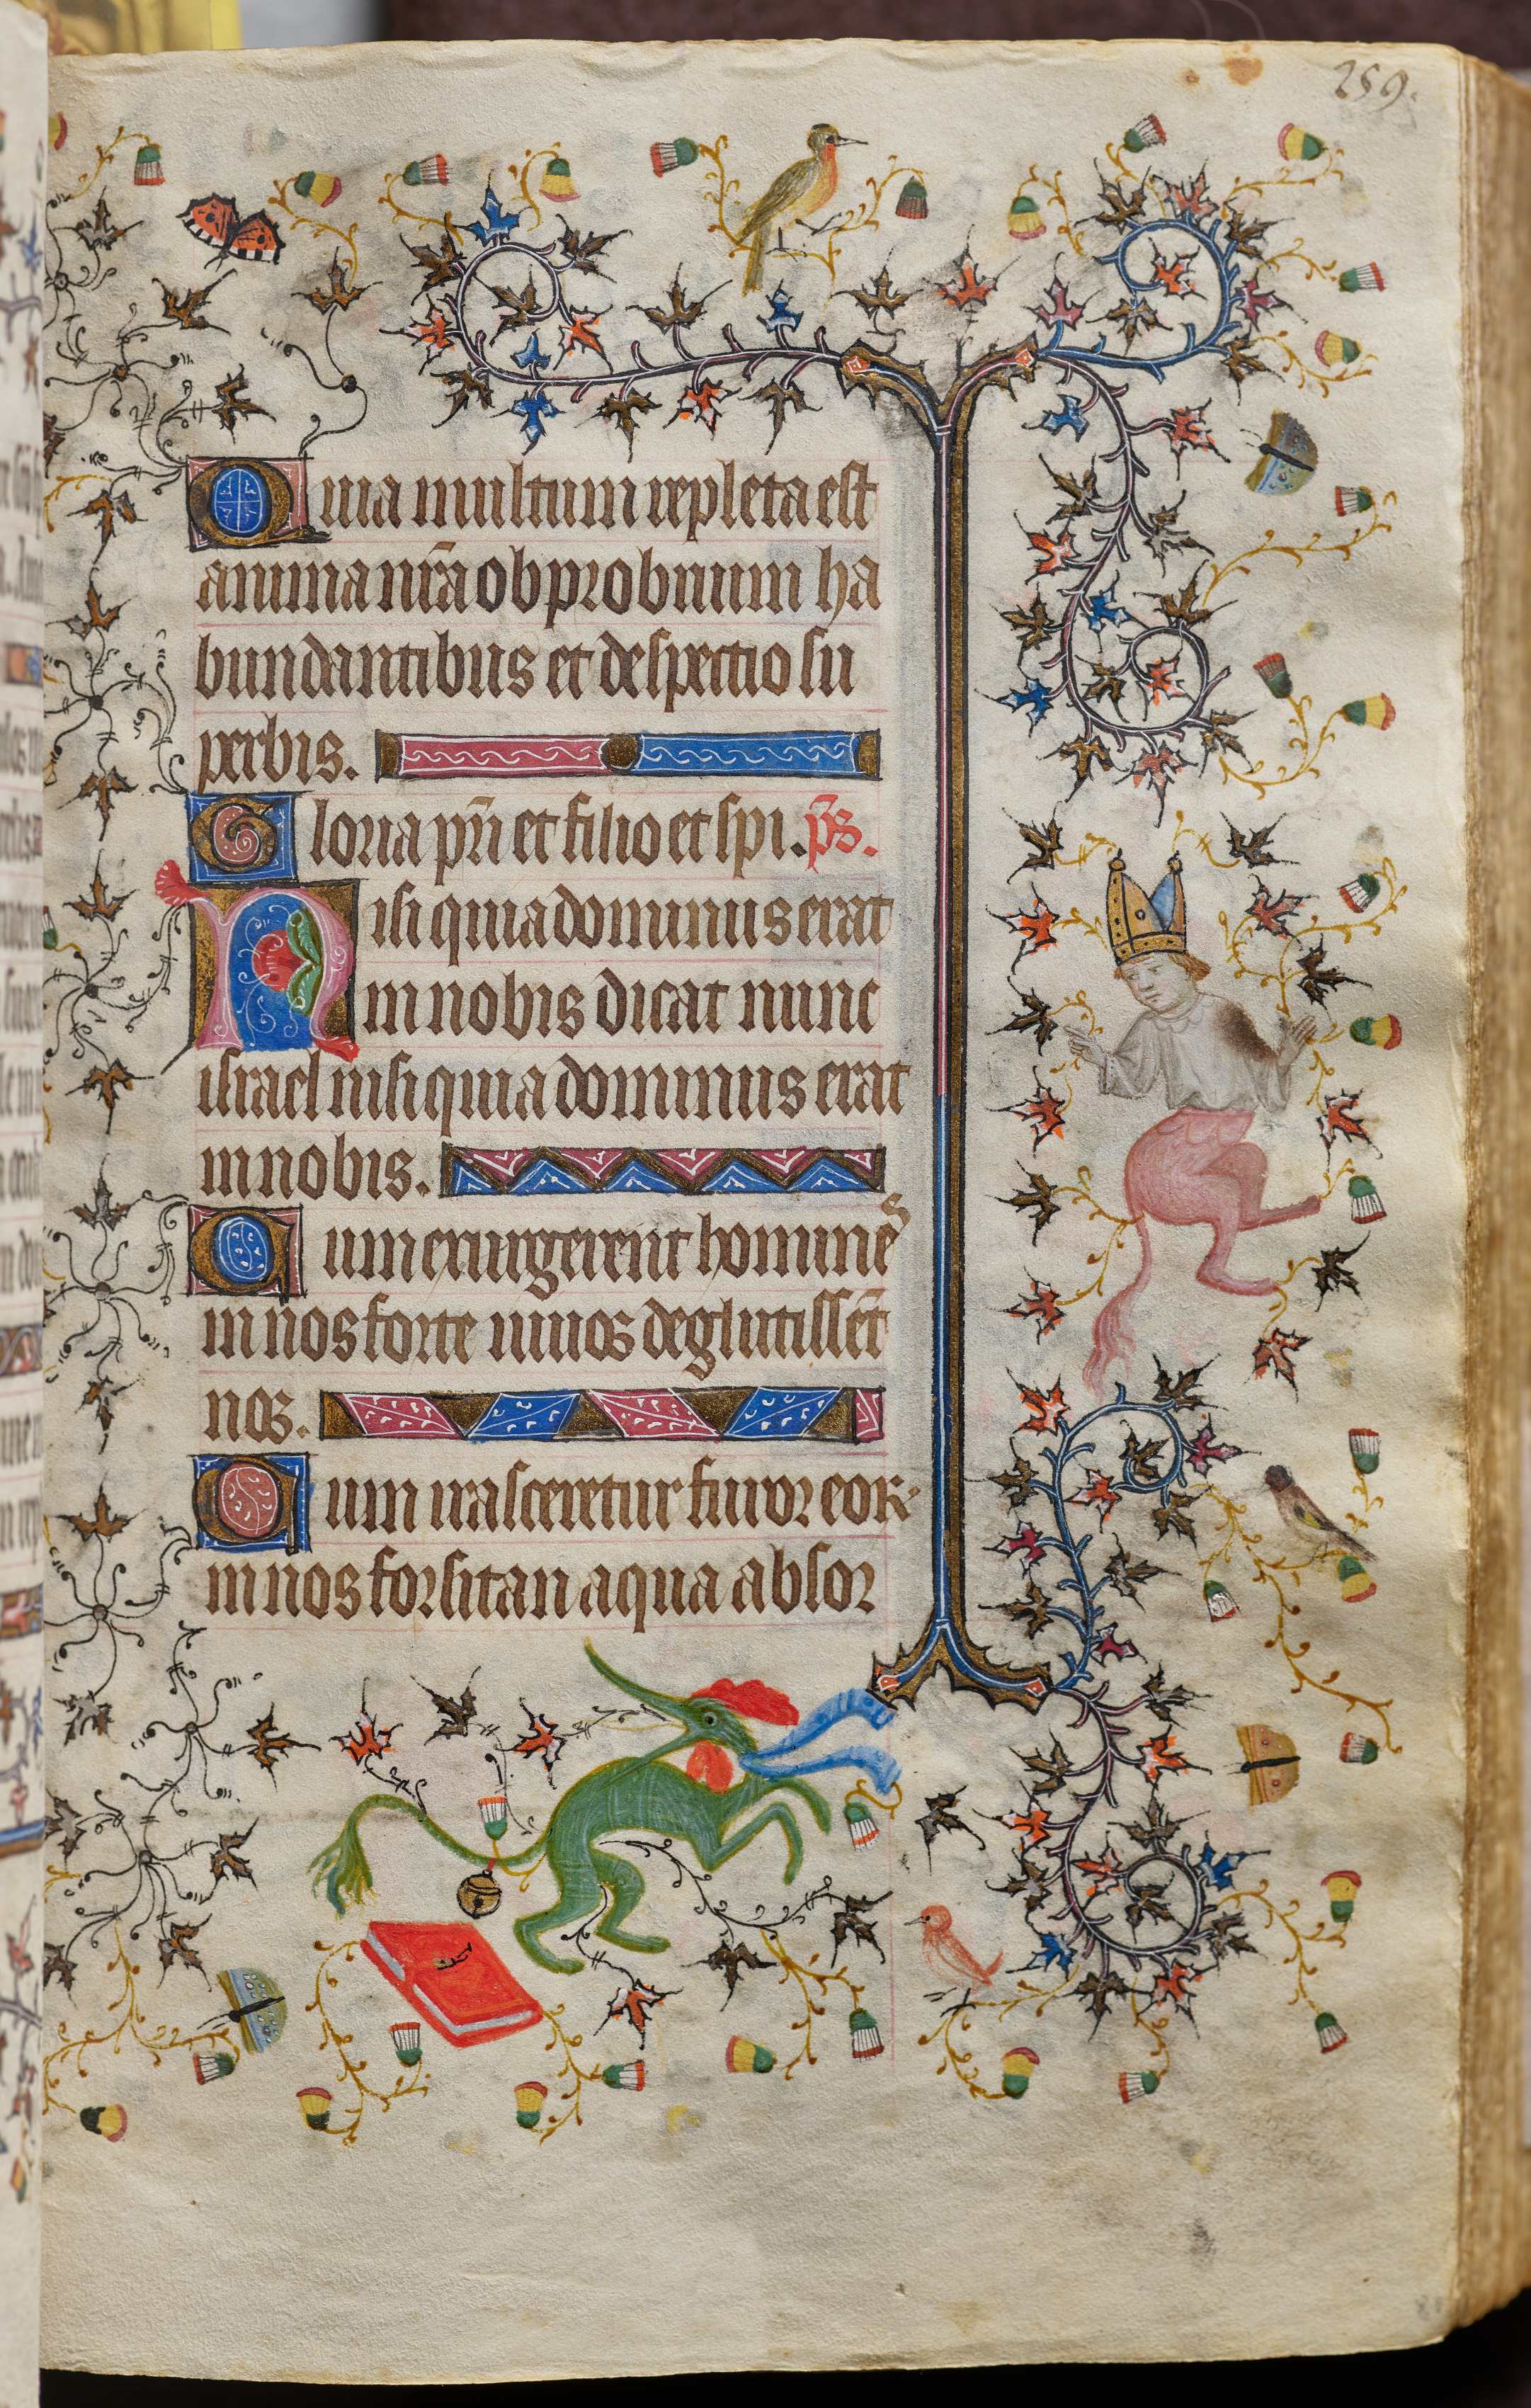 259.
Quia multum repleta est
anima nr̄a obprobrium ha
bundantibus et despectio su
perbis.
Gloria pr̄i et filio et spi. ps̄.
Nisi quia dominus erat
in nobis dicat nunc
israel nisi quia dominus erat
in nobis.
Cum exurgerent homines
in nos forte uiuos deglutissēt
nos.
Cum irasceretur furor eoꝝ
in nos forsitan aqua absor